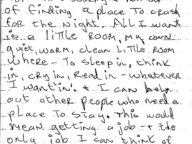 of finding a place to crash
for the night. All I want
is a little room, my own
quiet, warm, clean little room
where - to sleep in, think
in, cry in, read in - whatever
I wantin'. + I can help
out other people who need a
place to stay. This would
mean getting a job - + the
only job I can think of